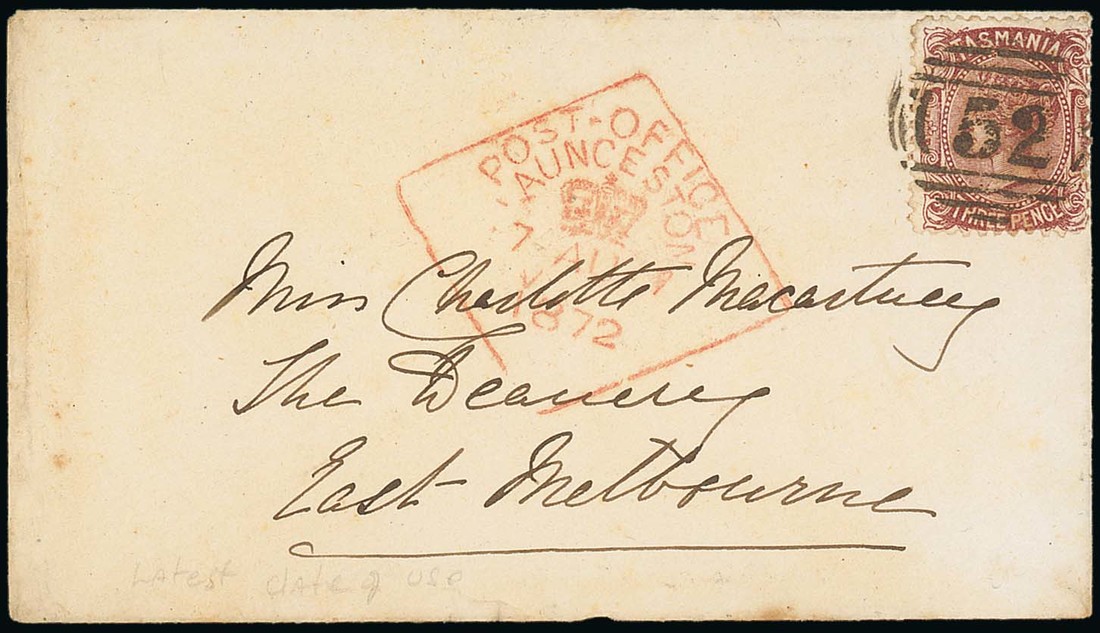 TASMANIA
52
THREE PENCE
POST-OFFICE
LAUNCESTON
7
1872
Miss Charlotte Macartney
The Deanery
East Melbourne
Latest date of use